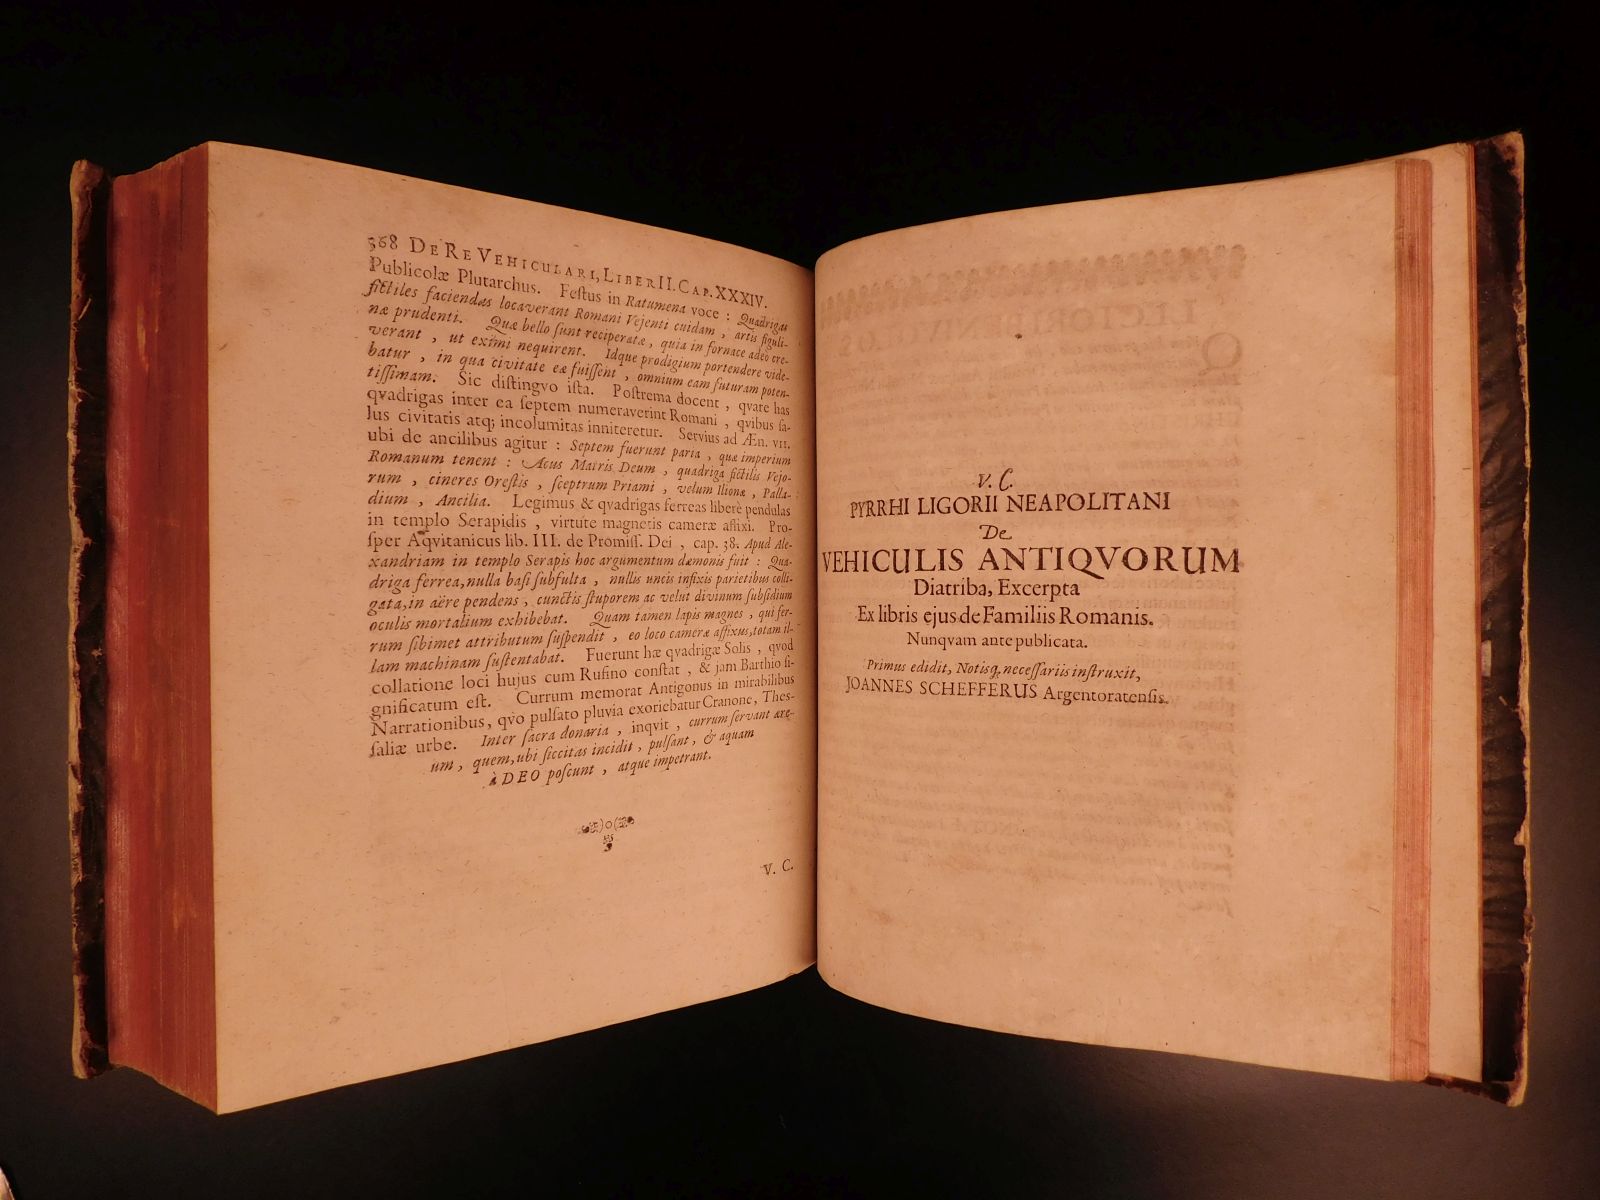 368 DE RE VEHICULARI, LIBER II. CAP. XXXIV.
Publicolæ Plutarchus. Festus in Ratumena voce : Quadrigas
fictiles faciendas locaverant Romani Vejenti cuidam , artis figuli-
næ prudenti. Quæ bello sunt reciperatæ, quia in fornace adeo cre-
verant , ut eximi nequirent. Idque prodigium portendere vide-
batur , in qua civitate eæ fuissent , omnium eam futuram poten-
tissimam. Sic distingvo ista. Postrema docent , qvare has
qvadrigas inter ea septem numeraverint Romani , qvibus sa-
lus civitatis atq; incolumitas inniteretur. Servius ad Æn. VII.
ubi de ancilibus agitur : Septem fuerunt paria , quæ imperium
Romanum tenent : Acus Matris Deum , quadriga fictilis Vejo-
rum , cineres Orestis , sceptrum Priami , velum Ilionæ , Palla-
dium , Ancilia. Legimus & qvadrigas ferreas liberè pendulas
in templo Serapidis , virtute magnetis cameræ affixi. Pro-
sper Aqvitanicus lib. III. de Promiss. Dei , cap. 38. Apud Ale-
xandriam in templo Serapis hoc argumentum dæmonis fuit : Qua-
driga ferrea, nulla basi subfulta , nullis uncis infixis parietibus colli-
gata, in aëre pendens , cunctis stuporem ac velut divinum subsidium
oculis mortalium exhibebat. Quam tamen lapis magnes , qui fer-
rum sibimet attributum suspendit , eo loco cameræ affixus, totam il-
lam machinam sustentabat. Fuerunt hæ qvadrigæ Solis , qvod
collatione loci hujus cum Rufino constat , & jam Barthio si-
gnificatum est. Currum memorat Antigonus in mirabilibus
Narrationibus, qvo pulsato pluvia exoriebatur Cranone, Thes-
saliæ urbe. Inter sacra donaria , inqvit , currum servant ære-
um , quem, ubi siccitas incidit , pulsant , & aquam
à DEO poscunt , atque impetrant.
V. C.
V. C.
PYRRHI LIGORII NEAPOLITANI
De
VEHICULIS ANTIQVORUM
Diatriba, Excerpta
Ex libris ejus de Familiis Romanis.
Nunqvam ante publicata.
Primus edidit, Notisq; necessariis instruxit,
JOANNES SCHEFFERUS Argentoratensis.